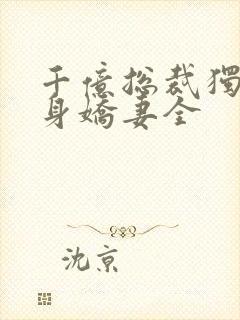 千億總裁獨
身嬌妻全
沈京